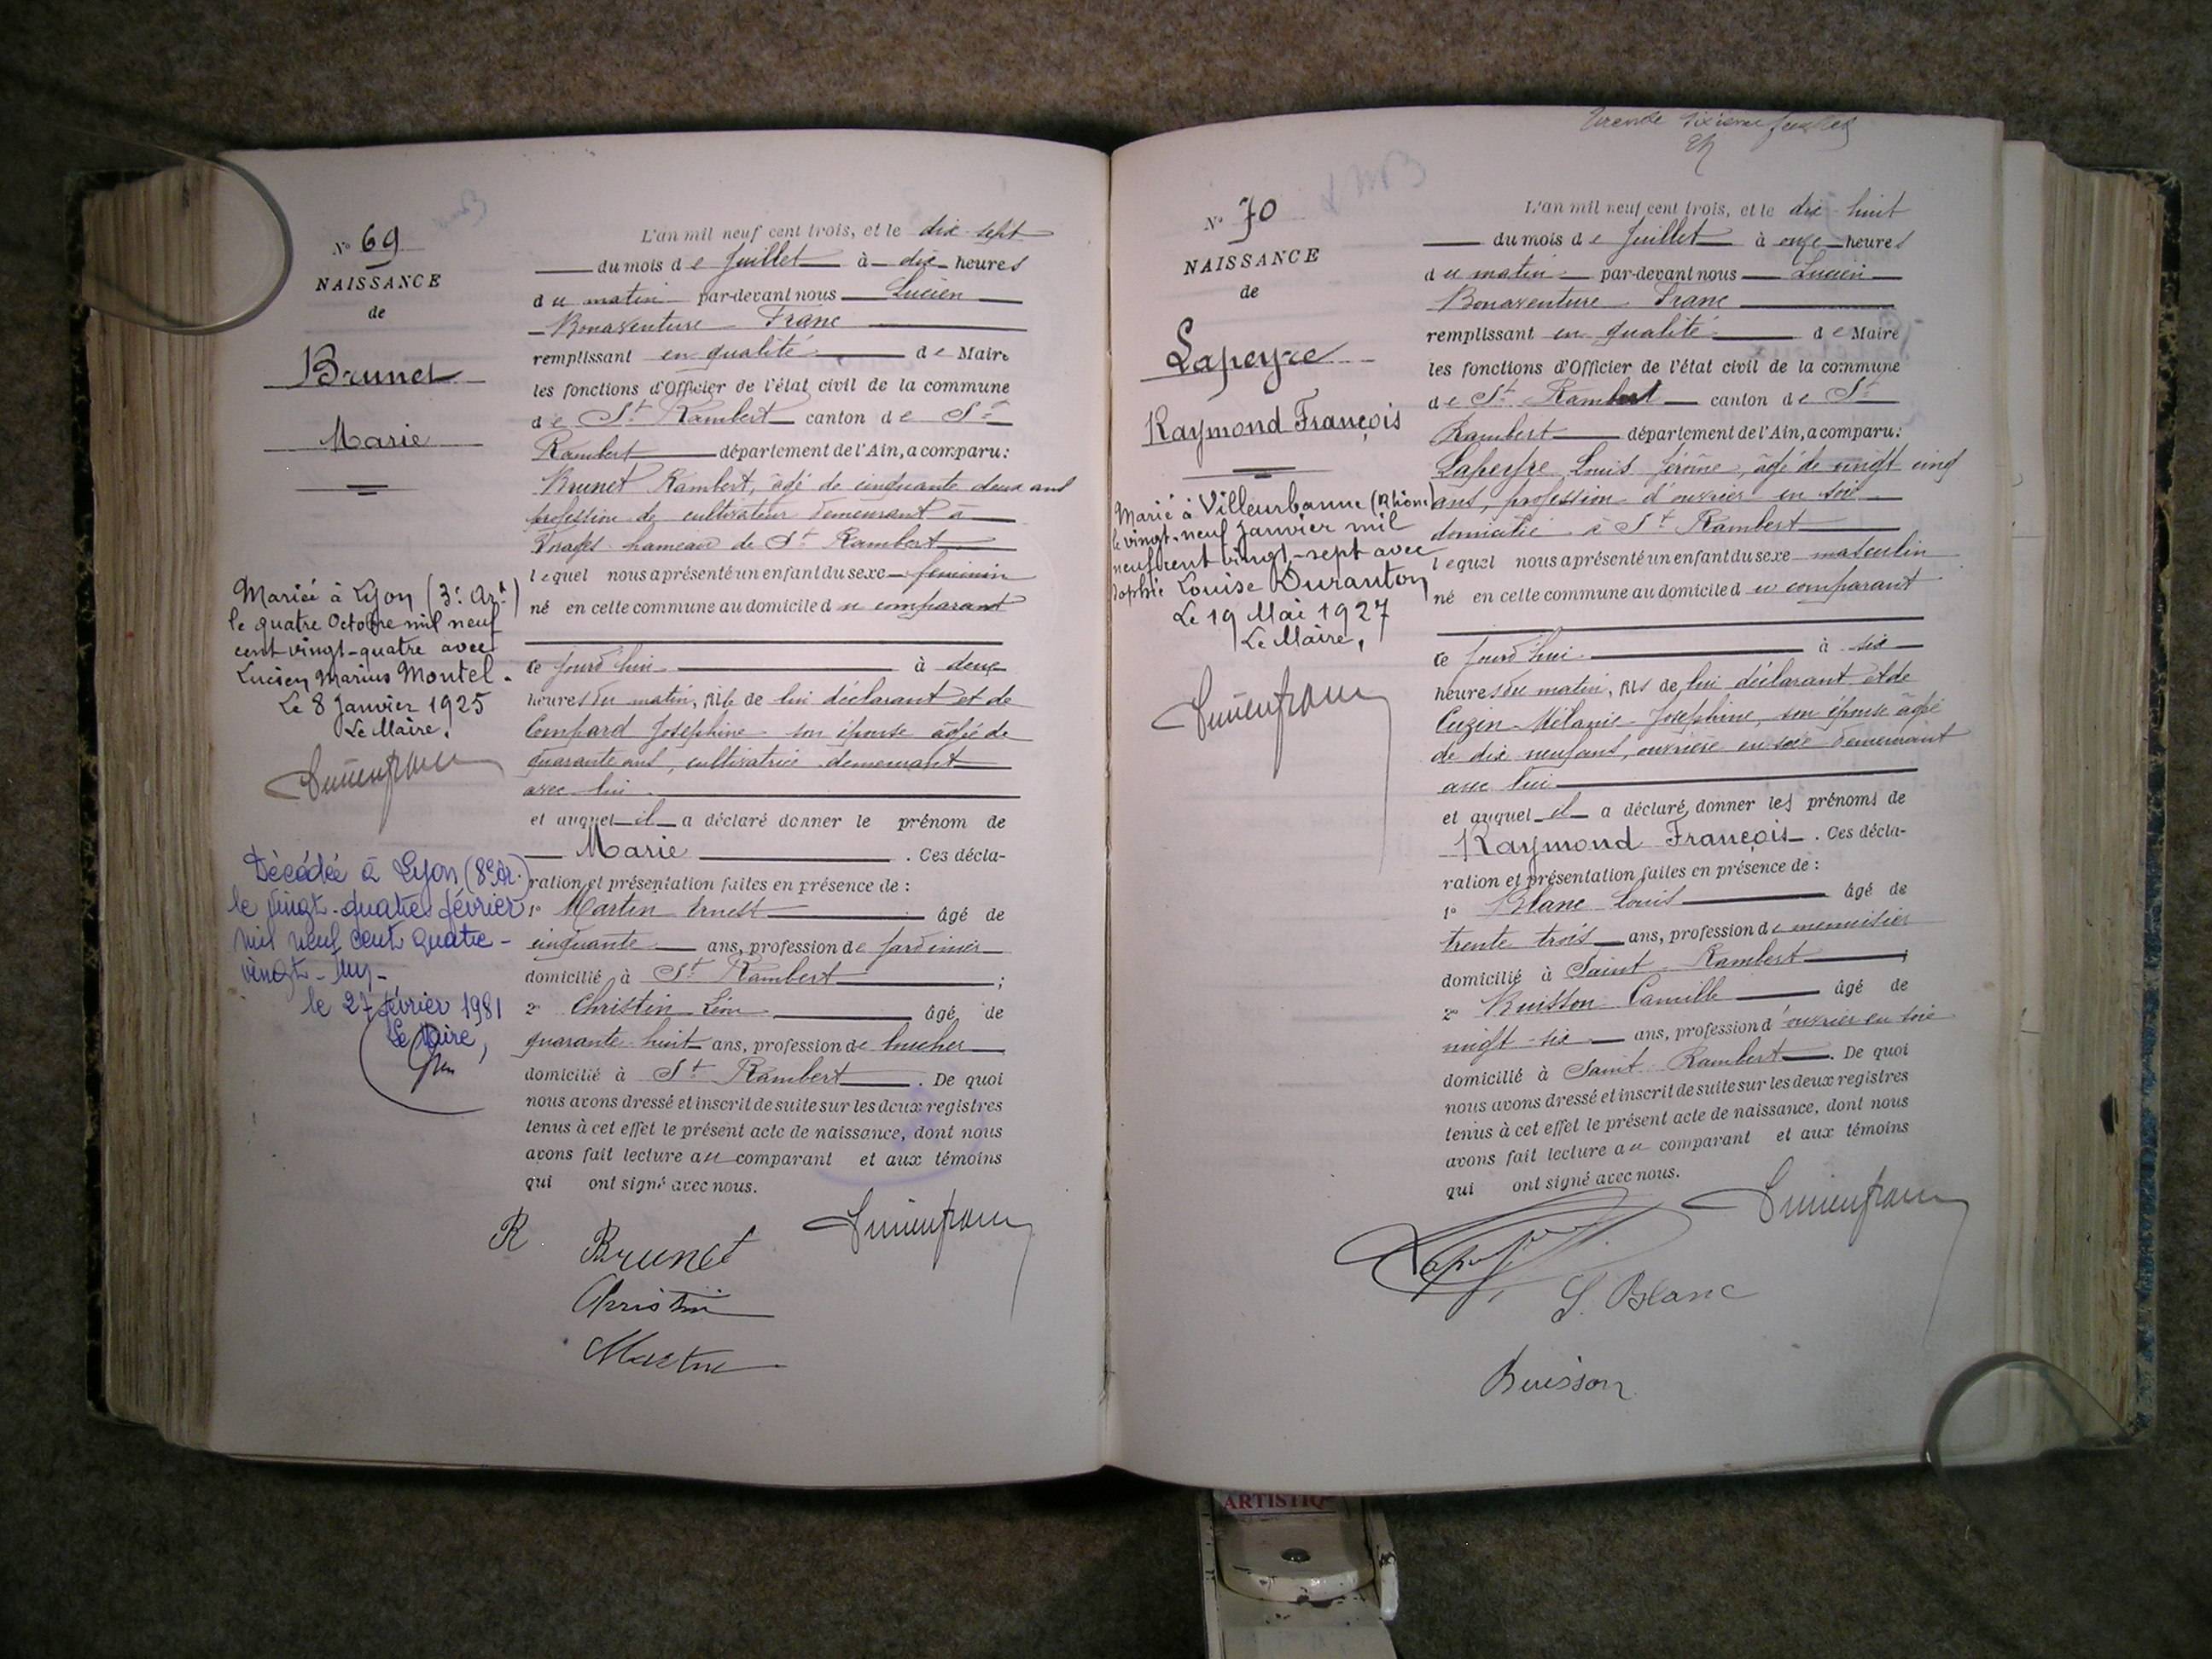 N° 69
NAISSANCE
de
Brunet
Marie
Mariée à Lyon (3e Art)
le quatre Octobre mil neuf
cent vingt-quatre avec
Lucien Marius Montel.
Le 8 Janvier 1925
Le Maire,
Lucienfranc
Décédée à Lyon (8e Ar.)
le vingt-quatre février
mil neuf cent quatre-
vingt-un-
le 27 février 1981
Le Maire,
L'an mil neuf cent trois, et le dix sept
du mois de Juillet à dix heures
du matin par-devant nous Lucien
Bonaventure Franc
remplissant en qualité de Maire
les fonctions d'Officier de l'état civil de la commune
de St Rambert canton de St
Rambert département de l'Ain, a comparu:
Brunet Rambert, âgé de cinquante deux ans
profession de cultivateur demeurant à
hameau de St Rambert
lequel nous a présenté un enfant du sexe feminin
né en cette commune au domicile du comparant
ce jourd'hui à deux
heures du matin, fils de lui déclarant et de
Compard Josephine son épouse âgée de
quarante ans, cultivatrice demeurant
avec lui
et auquel il a déclaré donner le prénom de
Marie . Ces décla-
ration et présentation faites en présence de :
1° Martin Ernest âgé de
cinquante ans, profession de jardinier
domicilié à St Rambert ;
2° Christin Léon âgé de
quarante huit ans, profession de boucher
domicilié à St Rambert . De quoi
nous avons dressé et inscrit de suite sur les deux registres
tenus à cet effet le présent acte de naissance, dont nous
avons fait lecture au comparant et aux témoins
qui ont signé avec nous.
R Brunet Lucienfranc
Christin
Martin
trente sixième feuillet
N° 70
NAISSANCE
de
Lapeyre
Raymond François
Marié à Villeurbanne (Rhône)
le vingt-neuf Janvier mil
neuf cent vingt-sept avec
Sophie Louise Duranton
Le 19 Mai 1927
Le Maire,
Lucienfranc
L'an mil neuf cent trois, et le dix huit
du mois de Juillet à onze heures
du matin par-devant nous Lucien
Bonaventure Franc
remplissant en qualité de Maire
les fonctions d'Officier de l'état civil de la commune
de St Rambert canton de St
Rambert département de l'Ain, a comparu:
Lapeyre Louis Jérôme, âgé de vingt cinq
ans, profession d'ouvrier en soie
domicilié à St Rambert
lequel nous a présenté un enfant du sexe masculin
né en cette commune au domicile du comparant
ce jourd'hui à six
heures du matin, fils de lui déclarant et de
Cuzin Mélanie Josephine, son épouse âgée
de dix neuf ans, ouvrière en soie demeurant
avec lui
et auquel il a déclaré donner les prénoms de
Raymond François . Ces décla-
ration et présentation faites en présence de :
1° Blanc Louis âgé de
trente trois ans, profession de menuisier
domicilié à Saint Rambert ;
2° Buisson Camille âgé de
vingt six ans, profession d'ouvrier en soie
domicilié à Saint Rambert . De quoi
nous avons dressé et inscrit de suite sur les deux registres
tenus à cet effet le présent acte de naissance, dont nous
avons fait lecture au comparant et aux témoins
qui ont signé avec nous.
Lucienfranc
L. Blanc
Buisson
ARTISTIQ